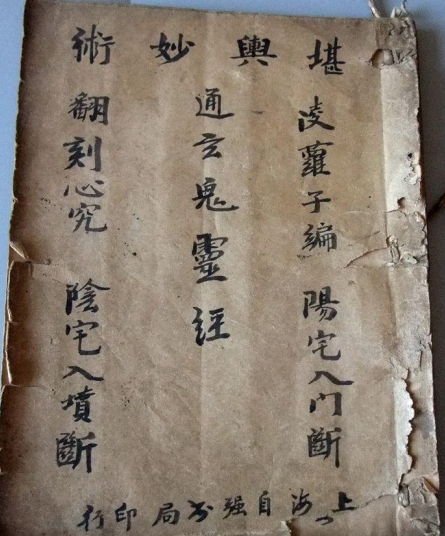 堪輿妙術
凌蘿子編 陽宅入門斷
通玄鬼靈經
翻刻心究 陰宅入墳斷
上海自强书局印行